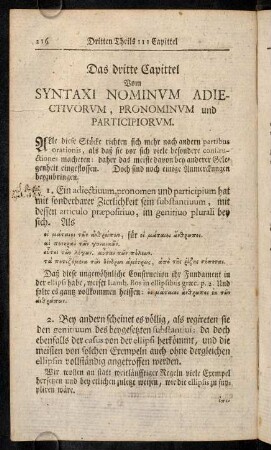 216 Dritten Theils III Capittel
Das dritte Capittel
Vom
SYNTAXI NOMINVM ADIE-
CTIVORVM, PRONOMINVM und
PARTICIPIORVM.
Alle diese Stücke richten sich mehr nach andern partibus
orationis, als daß sie vor sich viele besondere constru-
ctiones macheten: daher das meiste davon bey anderer Gele-
genheit eingeflossen. Doch sind noch einige Anmerckungen
beyzubringen.
1. Ein adiectiuum, pronomen und participium hat
mit sonderbarer Zierlichkeit sein substantiuum, mit
dessen articulo præpositiuo, im genitiuo plurali bey
sich. Als
οἱ μάταιοι τῶν ἀνθρώπων, für οἱ μάταιοι ἄνθρωποι.
αἱ τῶν γυναικῶν.
οὗτοι τῶν λόγων. αὗται τῶν πόλεων.
τὰ τῶν δένδρων ἀπὸ τῆς ῥίζης
Daß diese ungewöhnliche Construction ihr Fundament in
der ellipsi habe, weiset Lamb. Bos in ellipsibus græc. p. 2. Und
also es gantz vollkommen heissen: οἱ μάταιοι ἄνθρωποι ἐκ τῶν
ἀνθρώπων.
2. Bey andern scheinet es völlig, als regireten sie
den genitiuum des beygesetzten substantiui: da doch
ebenfalls der casus von der ellipsi herkömmt, und die
meisten von solchen Exempeln auch ohne dergleichen
ellipsin vollständig angetroffen werden.
Wir wollen an statt weitläufftiger Regeln viele Exempel
hersetzen und bey etlichen zuletzt weisen, wie die ellipsis zu sup-
pliren wäre.